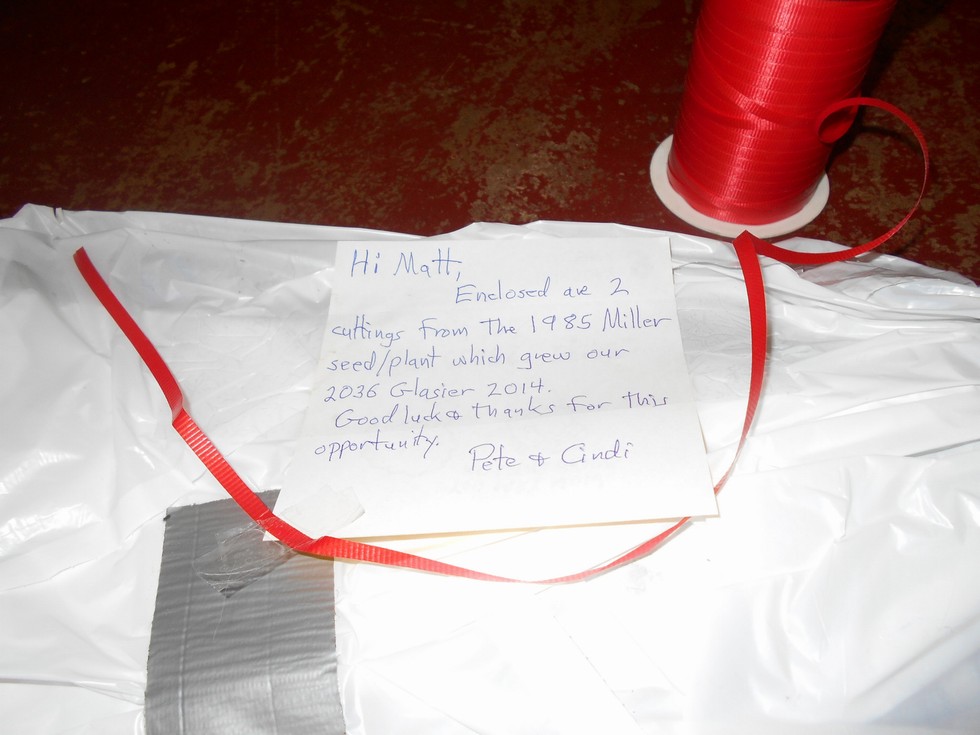 Hi Matt,
Enclosed are 2
cuttings from the 1985 Miller
seed/plant which grew our
2036 Glasier 2014.
Good luck & thanks for this
opportunity.
Pete & Cindi